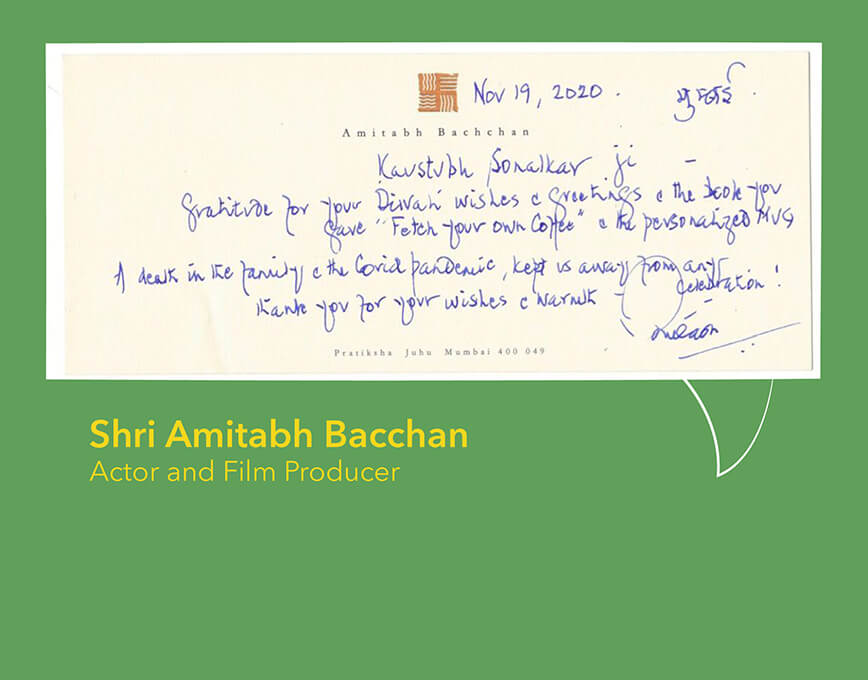 Nov 19, 2020. मुम्बई
Amitabh Bachchan
Kaustubh Sonalkar ji -
Gratitude for your Diwali wishes & greetings & the book you
gave "Fetch Your Own Coffee" & the personalized MUG
A death in the family & the Covid pandemic, kept us away from any
celebration!
thank you for your wishes & warmth -
Pratiksha Juhu Mumbai 400 049
Shri Amitabh Bacchan
Actor and Film Producer